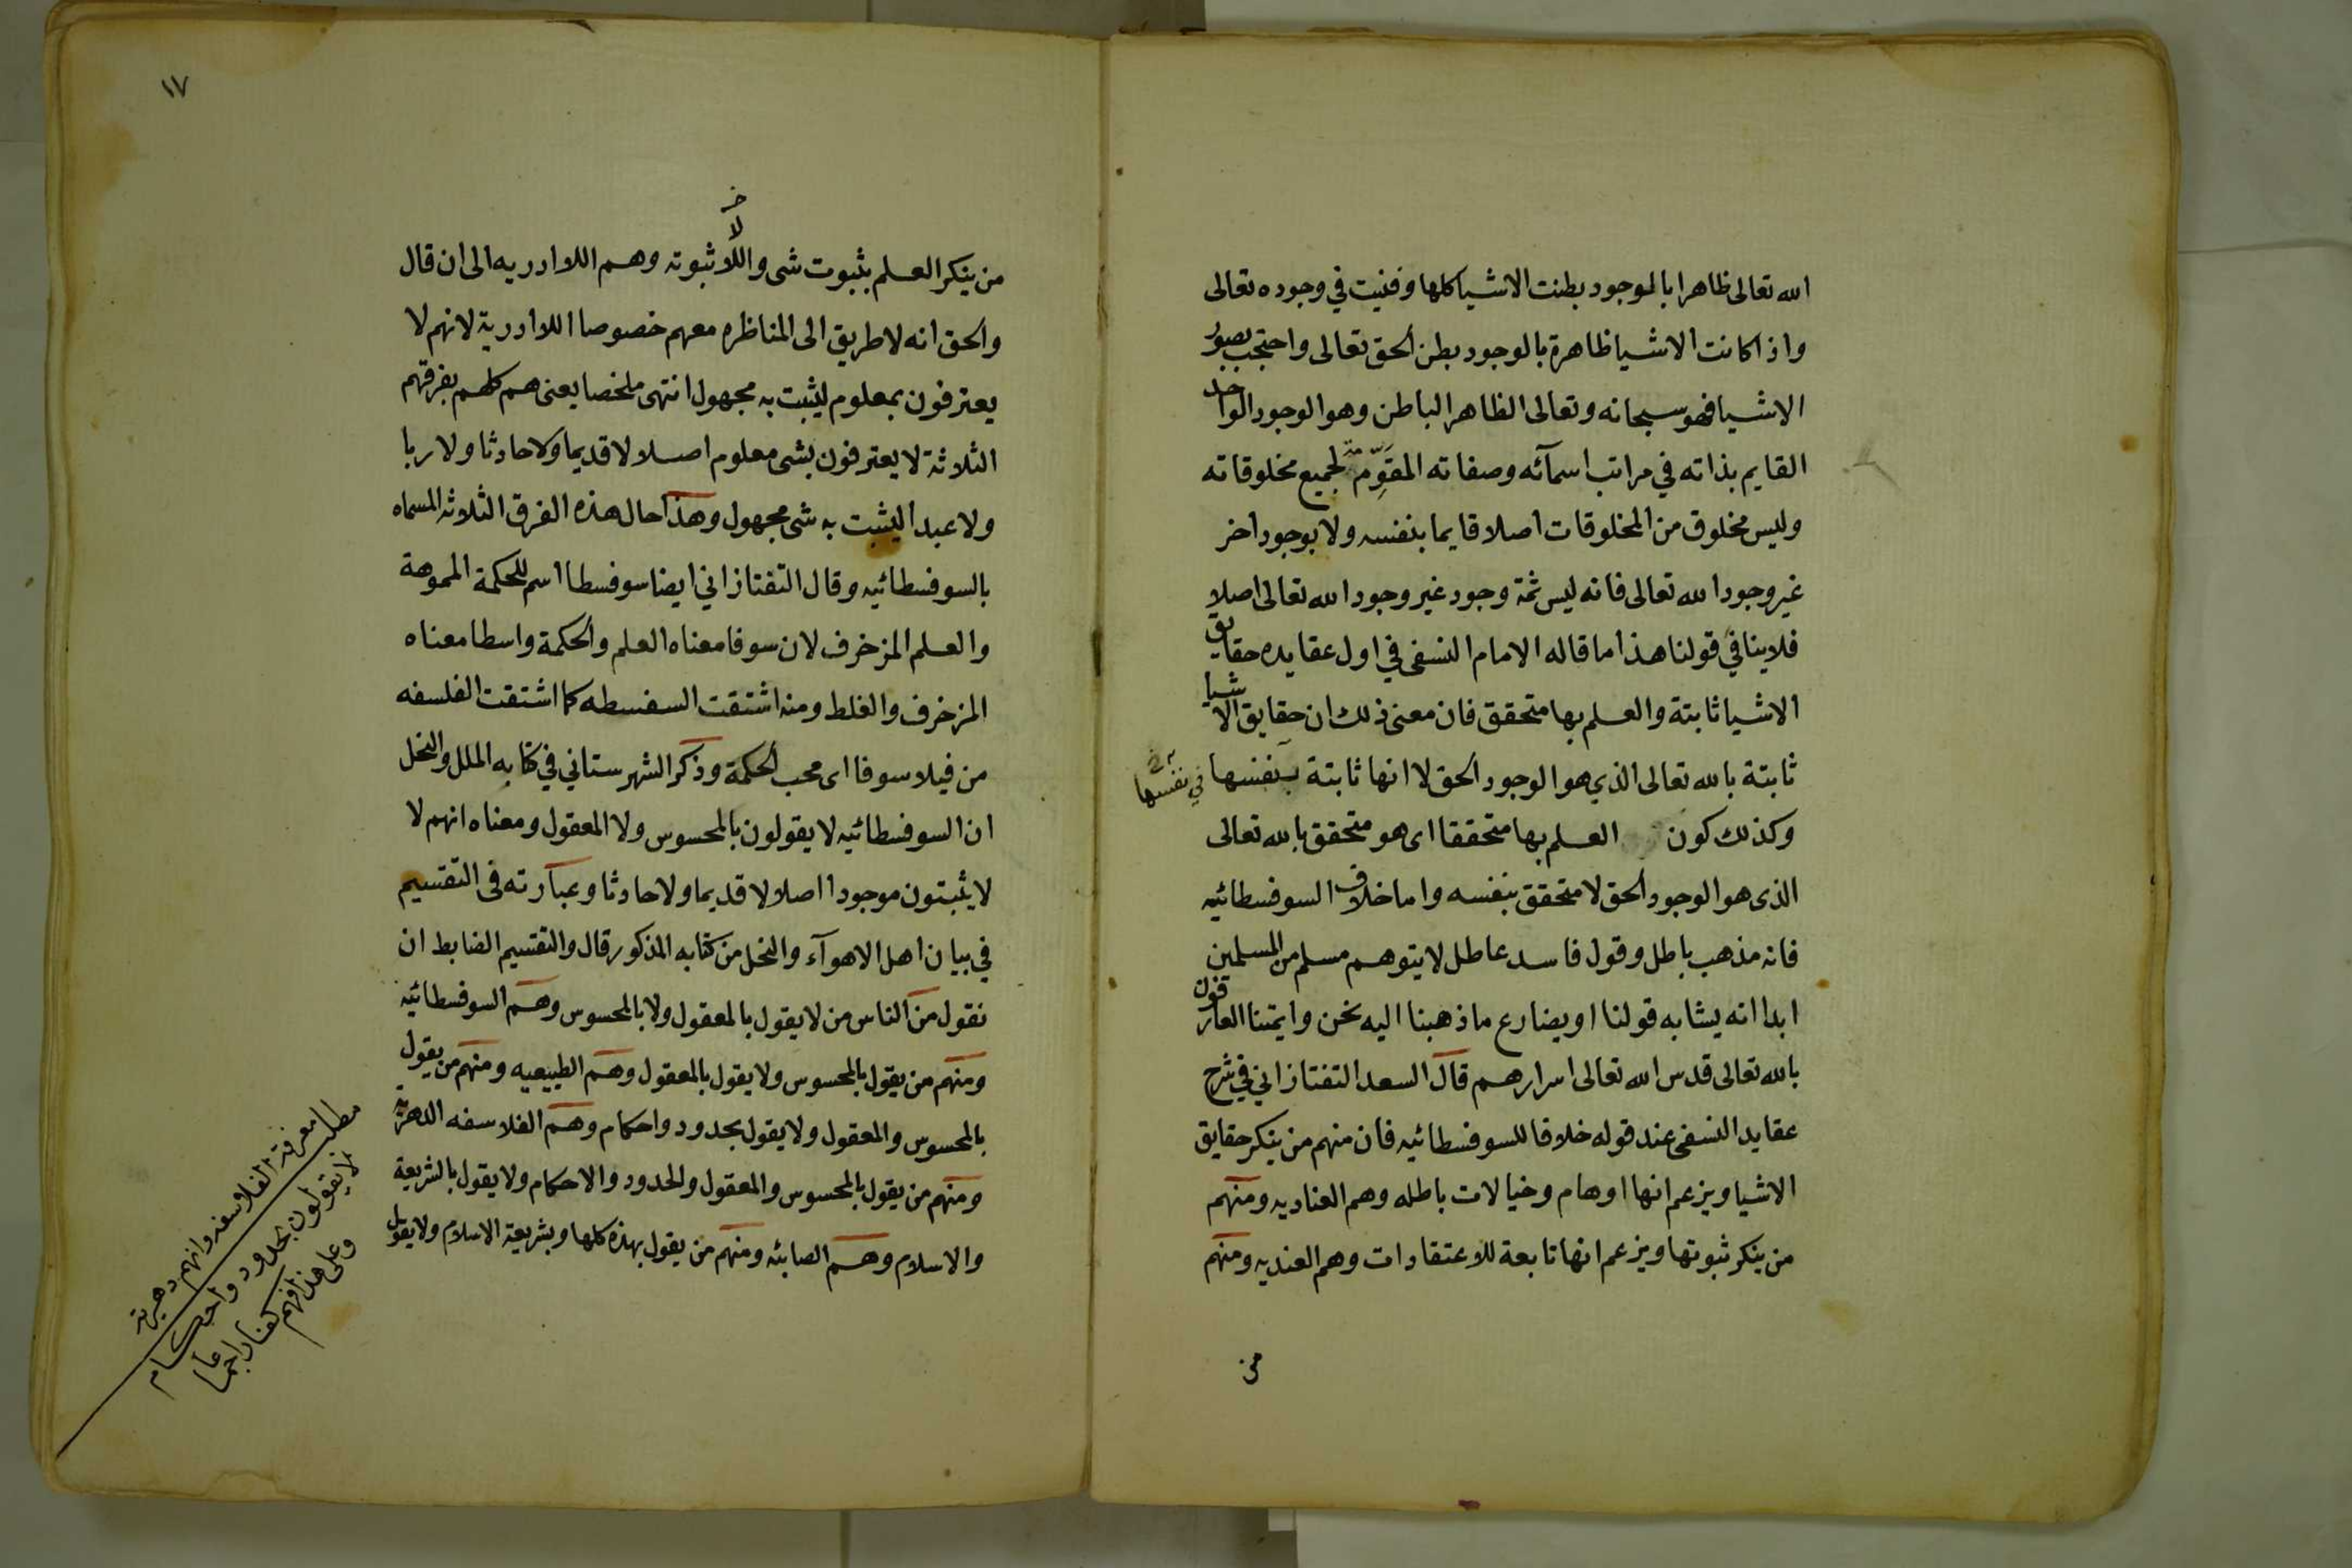 الله تعالى ظاهرا بالموجود بطنت الاشيا كلها وفنيت في وجوده تعالى
واذا كانت الاشيا ظاهرة بالوجود بطن الحق تعالى واحتجب بصور
الاشيا فهو سبحانه وتعالى الظاهر الباطن وهو الوجود الواحد
القايم بذاته في مراتب اسمآئه وصفاته المقوِّم لجميع مخلوقاته
وليس مخلوق من المخلوقات اصلا قايما بنفسه ولا بوجود اخر
غير وجود الله تعالى فانه ليس ثمة وجود غير وجود الله تعالى اصلا
فلا ينافي قولنا هذا ما قاله الامام النسفى في اول عقايده حقايق
الاشيا ثابتة والعلم بها متحقق فان معنى ذلك ان حقايق الاشيا
ثابتة بالله تعالى الذي هو الوجود الحق لا انها ثابتة بنفسها
في نفسها
وكذلك كون العلم بها متحققا اى هو متحقق بالله تعالى
الذى هو الوجود الحق لا متحقق بنفسه واما خلاف السوفسطائيه
فانه مذهب باطل وقول فاسد عاطل لا يتوهم مسلم من المسلمين
ابدا انه يشابه قولنا او يضارع ما ذهبنا اليه نحن وايمتنا العارفون
بالله تعالى قدس الله تعالى اسرارهم قال السعد التفتازاني في شرح
عقايد النسفى عند قوله خلافا للسوفسطائيه فان منهم من ينكر حقايق
الاشيا ويزعم انها اوهام وخيالات باطله وهم العناديه ومنهم
من ينكر ثبوتها ويزعم انها تابعة للاعتقادات وهم العنديه ومنهم
من
١٧
لا
من ينكر العلم بثبوت شى واللاثبوته وهم اللاادريه الى ان قال
والحق انه لا طريق الى المناظره معهم خصوصا اللاادرية لانهم لا
يعترفون بمعلوم ليثبت به مجهول انتهى ملخصا يعنى هم كلهم بفرقهم
الثلاثة لا يعترفون بشى معلوم اصلا لا قديما ولا حادثا ولا ربا
ولا عبدا ليثبت به شى مجهول وهذا حال هذه الفرق الثلاثه المسماه
بالسوفسطائيه وقال التفتازاني ايضا سوفسطا اسم للحكمة المموهة
والعلم المزخرف لان سوفا معناه العلم والحكمة واسطا معناه
المزخرف والغلط ومنه اشتقت السفسطه كما اشتقت الفلسفه
من فيلاسوفا اى محب الحكمة وذكر الشهرستاني في كتابه الملل والنحل
ان السوفسطائيه لا يقولون بالمحسوس ولا المعقول ومعناه انهم لا
لا يثبتون موجودا اصلا لا قديما ولا حادثا وعبارته فى التقسيم
في بيان اهل الاهوآء والنحل من كتابه المذكور قال والتقسيم الضابط ان
نقول من الناس من لا يقول بالمعقول ولا بالمحسوس وهم السوفسطائيه
ومنهم من يقول بالمحسوس ولا يقول بالمعقول وهم الطبيعيه ومنهم من يقول
بالمحسوس والمعقول ولا يقول بحدود واحكام وهم الفلاسفه الدهريه
ومنهم من يقول بالمحسوس والمعقول والحدود والاحكام ولا يقول بالشريعة
والاسلام وهم الصابئه ومنهم من يقول بهذه كلها وبشريعة الاسلام ولا يقول
مطلب معرفة الفلاسفه وانهم دهرية
لا يقولون بحدود واحكام
وعلى هذا فهم كفار اجماعا